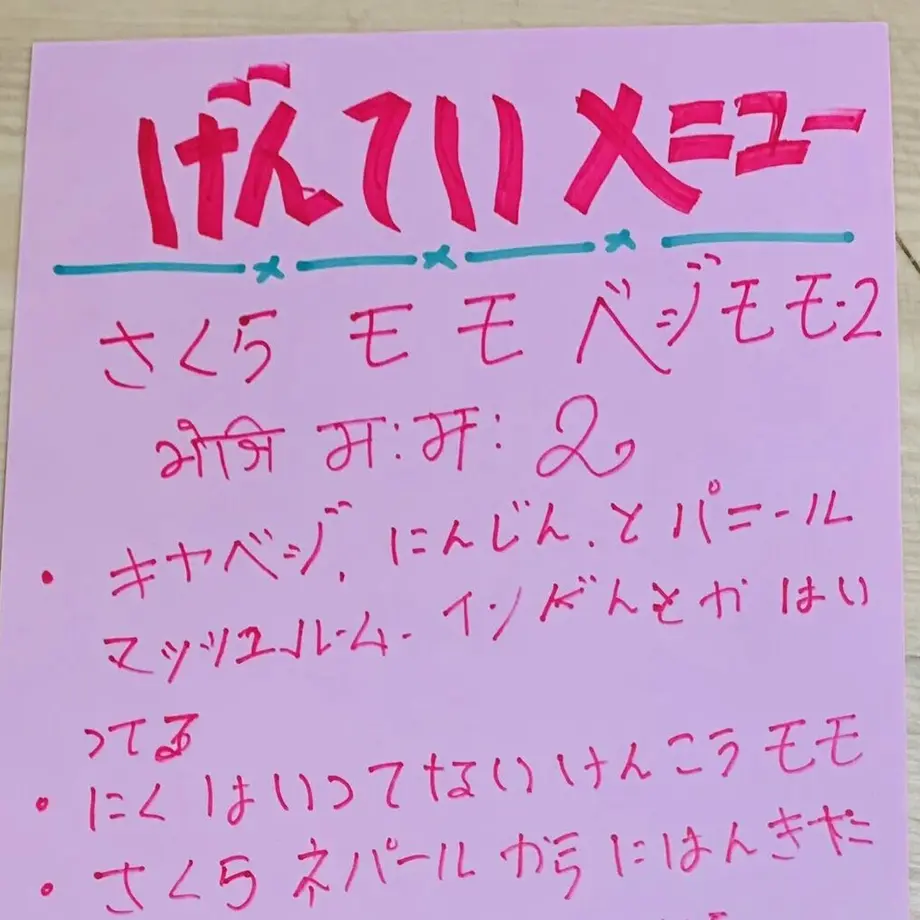 げんてい メニュー
さくら モモ ベジモモ・2
म:म: 2
・ キャベジ、にんじん、と パニール
マッツュルーム・ インゲんとか はい
ってる
・ にく はいってない けんこう モモ
・ さくら ネパール から にほんきた